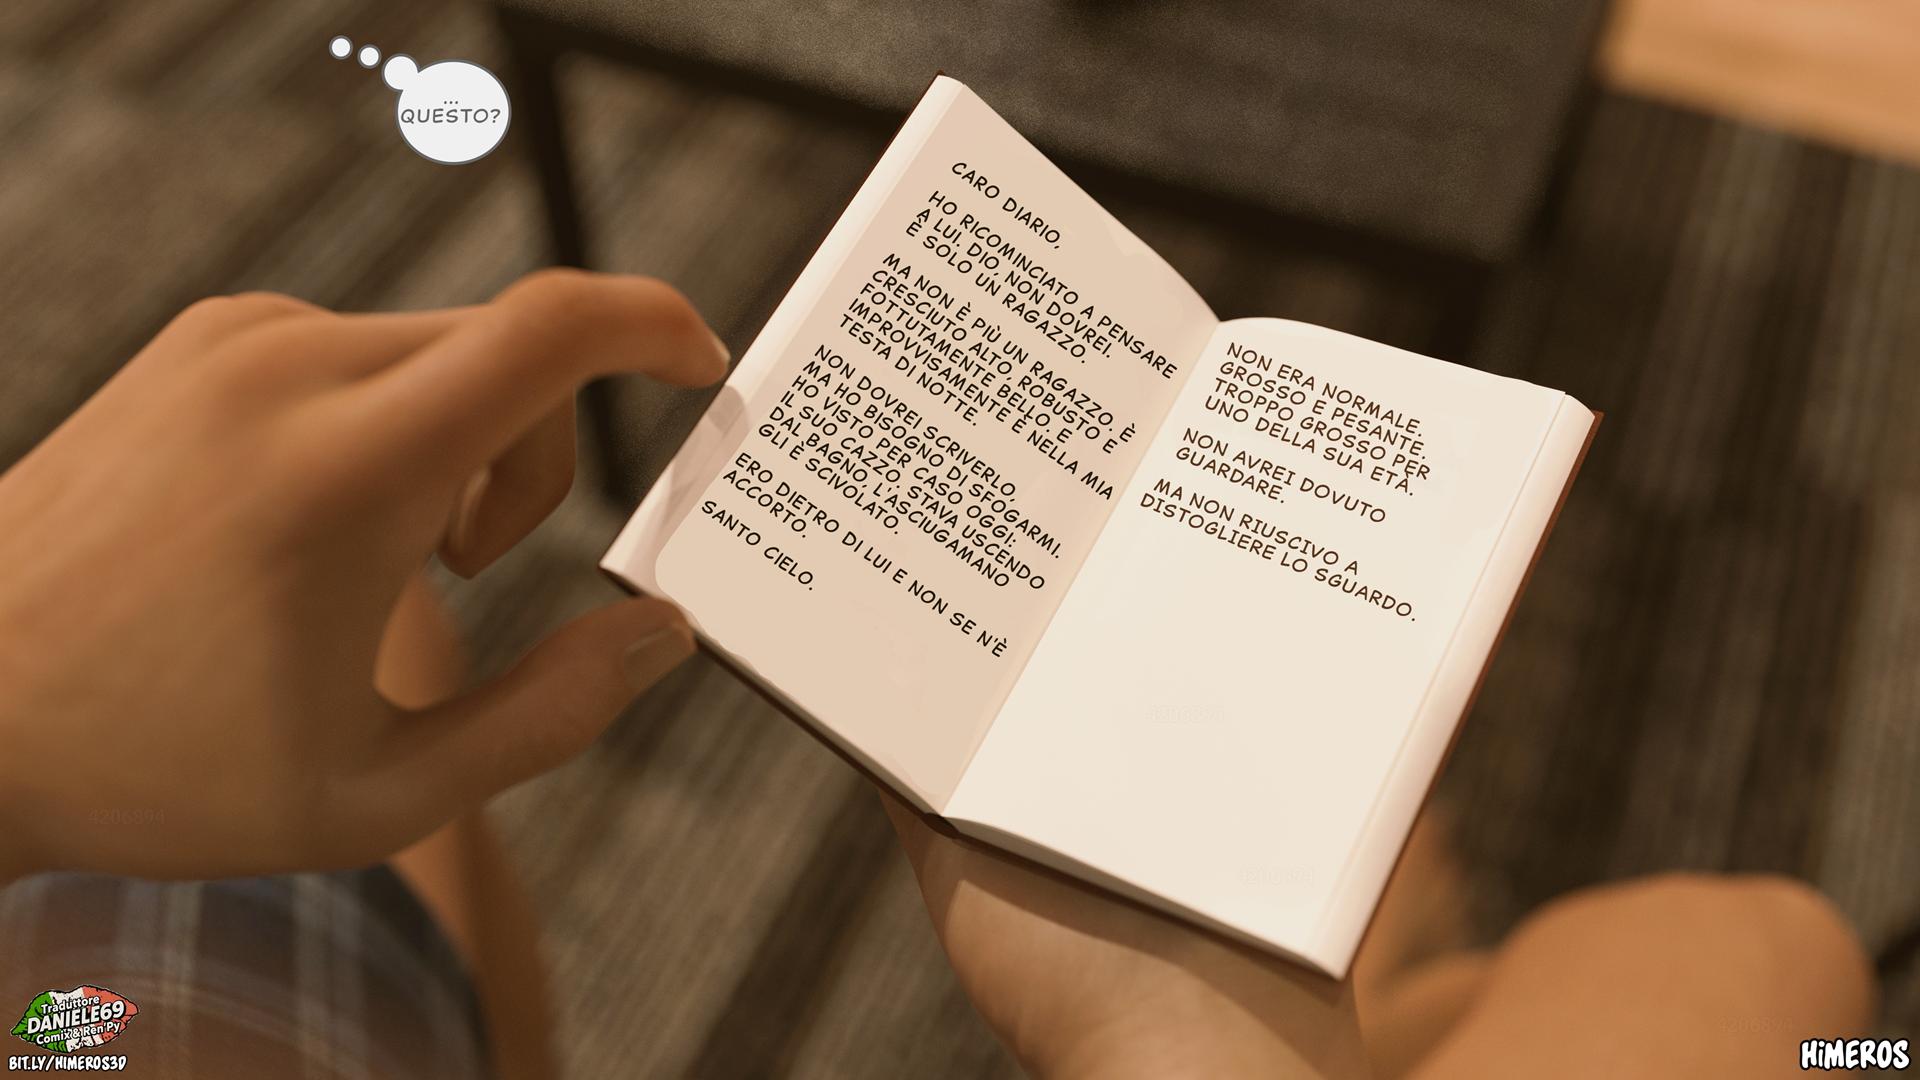 ...
QUESTO?
CARO DIARIO,
HO RICOMINCIATO A PENSARE
A LUI. DIO, NON DOVREI.
È SOLO UN RAGAZZO.
MA NON È PIÙ UN RAGAZZO. È
CRESCIUTO ALTO, ROBUSTO E
FOTTUTAMENTE BELLO. E
IMPROVVISAMENTE È NELLA MIA
TESTA DI NOTTE.
NON DOVREI SCRIVERLO,
MA HO BISOGNO DI SFOGARMI.
HO VISTO PER CASO OGGI:
IL SUO CAZZO. STAVA USCENDO
DAL BAGNO, L'ASCIUGAMANO
GLI È SCIVOLATO.
ERO DIETRO DI LUI E NON SE N'È
ACCORTO.
SANTO CIELO.
NON ERA NORMALE.
GROSSO E PESANTE.
TROPPO GROSSO PER
UNO DELLA SUA ETÀ.
NON AVREI DOVUTO
GUARDARE.
MA NON RIUSCIVO A
DISTOGLIERE LO SGUARDO.
4206894
4206894
4206894
4206894
Traduttore
DANIELE69
Comix & Ren'Py
BIT.LY/HIMEROS3D
HiMEROS